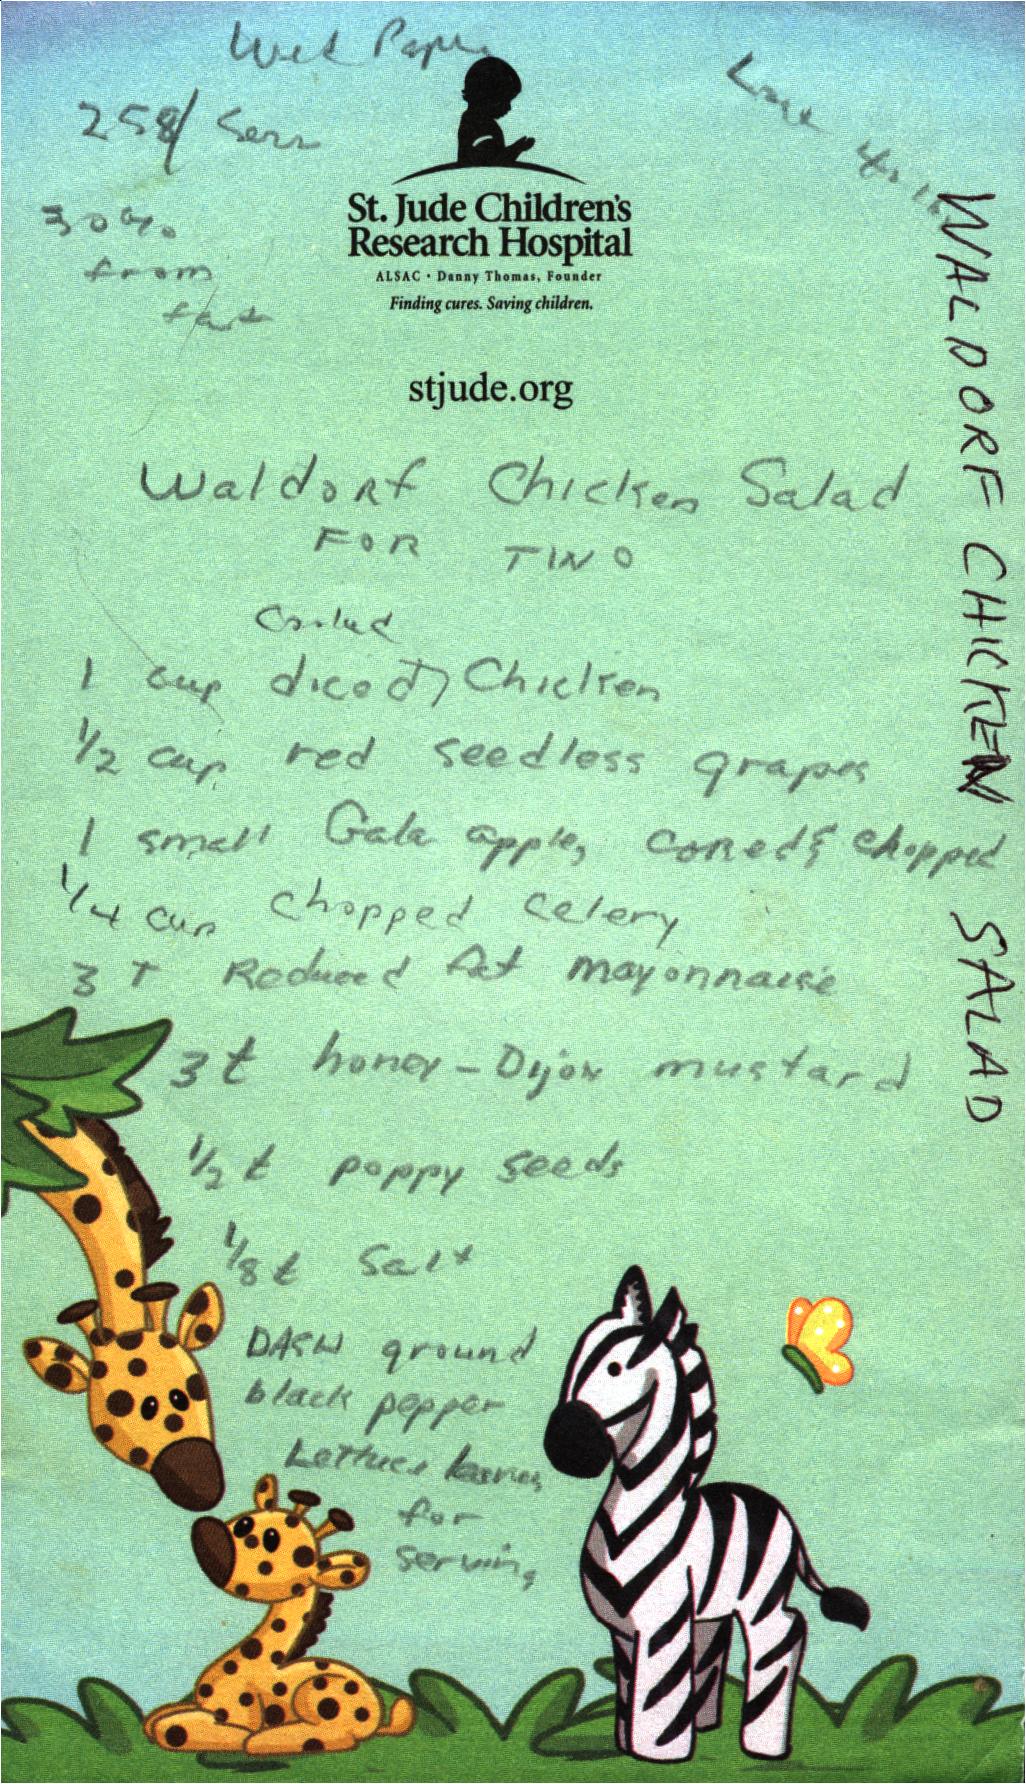 258/Serv
30%
from
fat
St. Jude Children's
Research Hospital
ALSAC · Danny Thomas, Founder
Finding cures. Saving children.
stjude.org
Waldorf Chicken Salad
FOR TWO
Cooked
1 cup diced, Chicken
1/2 cup red seedless grapes
1 small Gala apple, cored & chopped
1/4 cup chopped celery
3 T Reduced fat mayonnaise
3 t honey-Dijon mustard
1/2 t poppy seeds
1/8 t Salt
DASH ground
black pepper
Lettuce leaves
for
serving
WALDORF CHICKEN SALAD